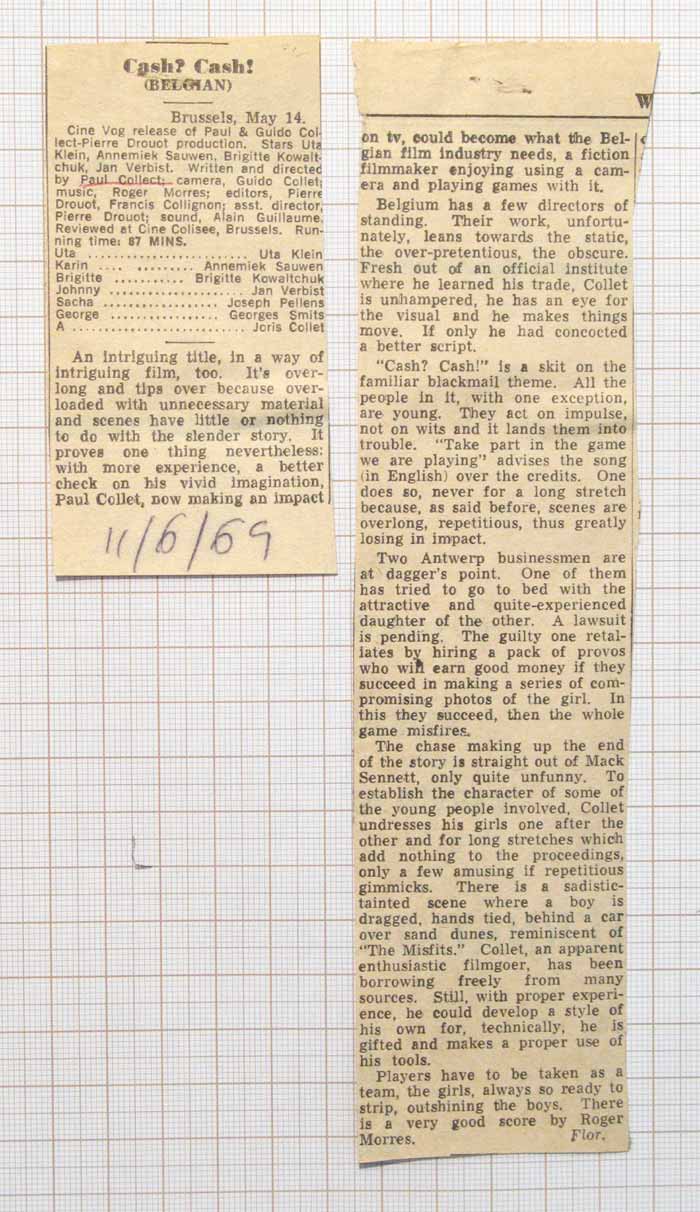 Cash? Cash!
(BELGIAN)
Brussels, May 14.
Cine Vog release of Paul & Guido Col-
lect-Pierre Drouot production. Stars Uta
Klein, Annemiek Sauwen, Brigitte Kowalt-
chuk, Jan Verbist. Written and directed
by Paul Collect; camera, Guido Collet;
music, Roger Morres; editors, Pierre
Drouot, Francis Collignon; asst. director,
Pierre Drouot; sound, Alain Guillaume.
Reviewed at Cine Colisee, Brussels. Run-
ning time: 87 MINS.
Uta ........................ Uta Klein
Karin .... ......... Annemiek Sauwen
Brigitte .......... Brigitte Kowaltchuk
Johnny .................. Jan Verbist
Sacha ................ Joseph Pellens
George ................ Georges Smits
A ......................... Joris Collet
An intriguing title, in a way of
intriguing film, too. It's over-
long and tips over because over-
loaded with unnecessary material
and scenes have little or nothing
to do with the slender story. It
proves one thing nevertheless:
with more experience, a better
check on his vivid imagination,
Paul Collet, now making an impact
11/6/69
W
on tv, could become what the Bel-
gian film industry needs, a fiction
filmmaker enjoying using a cam-
era and playing games with it.
Belgium has a few directors of
standing. Their work, unfortu-
nately, leans towards the static,
the over-pretentious, the obscure.
Fresh out of an official institute
where he learned his trade, Collet
is unhampered, he has an eye for
the visual and he makes things
move. If only he had concocted
a better script.
"Cash? Cash!" is a skit on the
familiar blackmail theme. All the
people in it, with one exception,
are young. They act on impulse,
not on wits and it lands them into
trouble. "Take part in the game
we are playing" advises the song
(in English) over the credits. One
does so, never for a long stretch
because, as said before, scenes are
overlong, repetitious, thus greatly
losing in impact.
Two Antwerp businessmen are
at dagger's point. One of them
has tried to go to bed with the
attractive and quite-experienced
daughter of the other. A lawsuit
is pending. The guilty one retal-
iates by hiring a pack of provos
who will earn good money if they
succeed in making a series of com-
promising photos of the girl. In
this they succeed, then the whole
game misfires.
The chase making up the end
of the story is straight out of Mack
Sennett, only quite unfunny. To
establish the character of some of
the young people involved, Collet
undresses his girls one after the
other and for long stretches which
add nothing to the proceedings,
only a few amusing if repetitious
gimmicks. There is a sadistic-
tainted scene where a boy is
dragged, hands tied, behind a car
over sand dunes, reminiscent of
"The Misfits." Collet, an apparent
enthusiastic filmgoer, has been
borrowing freely from many
sources. Still, with proper experi-
ence, he could develop a style of
his own for, technically, he is
gifted and makes a proper use of
his tools.
Players have to be taken as a
team, the girls, always so ready to
strip, outshining the boys. There
is a very good score by Roger
Morres. Flor.